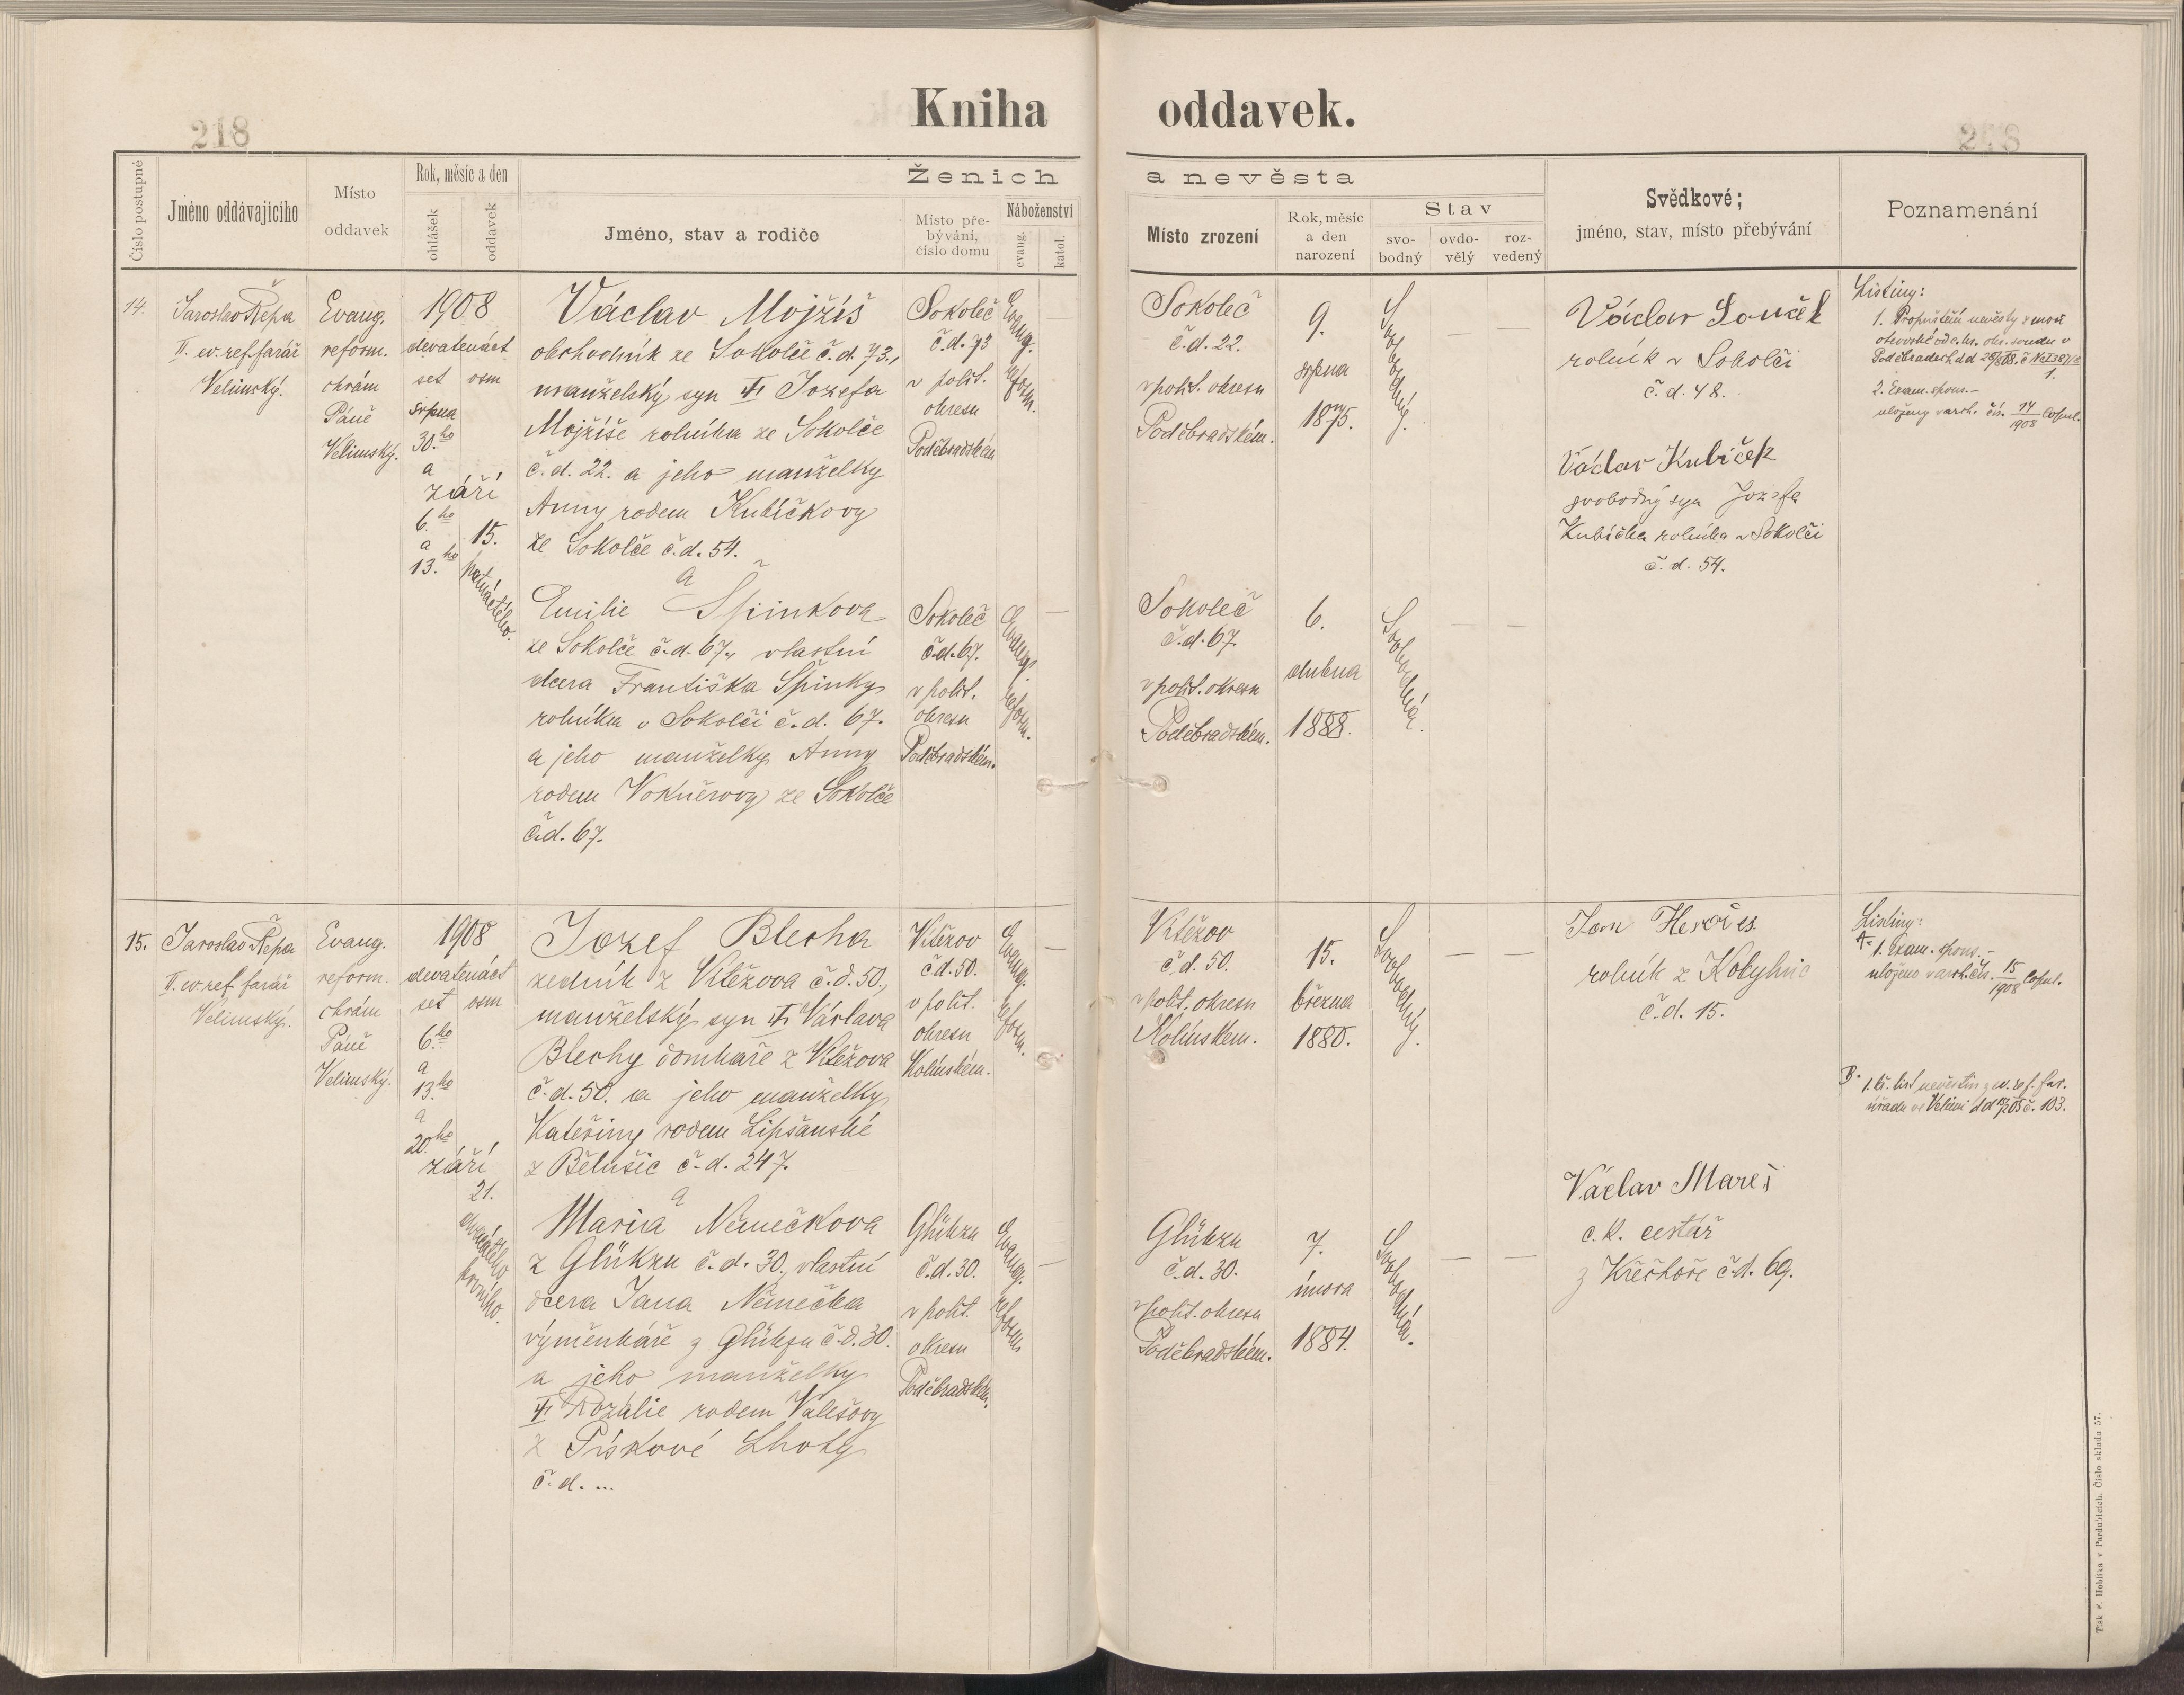 218
Kniha oddavek.
218
Číslo postupné
Jméno oddávajícího
Místo
oddavek
Rok, měsíc a den
ohlášek
oddavek
Ženich
a nevěsta
Jméno, stav a rodiče
Místo pře-
bývání,
číslo domu
Náboženství
evang.
katol.
Místo zrození
Rok, měsíc
a den
narození
Stav
svo-
bodný
ovdo-
vělý
roz-
vedený
Svědkové;
jméno, stav, místo přebývání
Poznamenání
14.
Jaroslav Řepa
II. ev. ref. farář
Velimský.
Evang.
reform.
chrám
Páně
Velimský.
1908
devatenáct
set osm
srpna
30.ho
a
září
6.ho
a
13.ho
15.
patnáctého.
Václav Mojžíš
obchodník ze Sokolče č. d. 73.,
manželský syn Jozefa
Mojžíše rolníka ze Sokolče
č. d. 22. a jeho manželky
Anny rodem Kubíčkovy
ze Sokolče č. d. 54.
a
Sokoleč
č. d. 73
v polit.
okresu
Poděbradském
Evang.
reform.
Sokoleč
č. d. 22.
v polit. okresu
Poděbradském.
9.
srpna
1875.
Svobodný.
Václav Souček
rolník v Sokolči
č. d. 48.
Václav Kubíček
svobodný syn Jozefa
Kubíčka rolníka v Sokolči
č. d. 54.
Listiny:
1. Propuštění nevěsty z moci
otcovské od c. kr. okr. soudu v
Poděbradech dd
2. Exam. spons.-
uloženy v arch. čís. 14/1908 Copul.
Emilie Špinkova
ze Sokolče č. d. 67., vlastní
dcera Františka Špinky
rolníka v Sokolči č. d. 67.
a jeho manželky Anny
rodem ze Sokolče
č. d. 67.
Sokoleč
č. d. 67.
v polit.
okresu
Poděbradském.
Evang.
reform.
Sokoleč
č. d. 67.
v polit. okresu
Poděbradském.
6.
dubna
1888.
Svobodná.
15.
Jaroslav Řepa
II. ev. ref. farář
Velimský.
Evang.
reform.
chrám
Páně
Velimský.
1908
devatenáct
set osm
6.ho
a
13.ho
a
20.ho
září
21.
dvacátého
prvního.
Jozef Blecha
zedník z Vítězova č. d. 50.,
manželský syn Václava
Blechy domkáře z Vítězova
č. d. 50. a jeho manželky
Kateřiny rodem Lipšanské
z Bělušic č. d. 247.
a
Vítězov
č. d. 50.
v polit.
okresu
Kolínském.
Evang.
reform.
Vítězov
č. d. 50.
v polit. okresu
Kolínském.
15.
března
1880.
Svobodný.
Jan
rolník z Kobylnic
č. d. 15.
Václav Mareš
c. k. cestář
z Křečhoře č. d. 69.
Listiny:
A. 1. Exam. spons.-
uloženo v arch. čís. 15/1908 Copul.
B. 1. kř. list nevěstin z ev. ref. far.
úřadu ve Velimi č. 103.
Maria Němečkova
z Glükzu č. d. 30., vlastní
dcera Jana Němečka
výměnkáře z Glükzu č. d. 30.
a jeho manželky
Rozálie rodem Valešovy
z Pískové Lhoty
č. d. ...
Glükzu
č. d. 30.
v polit.
okresu
Poděbradském.
Evang.
reform.
Glükzu
č. d. 30.
v polit. okresu
Poděbradském.
7.
února
1884.
Svobodná.
Tisk F. Hoblíka v Pardubicích. Číslo skladu 57.